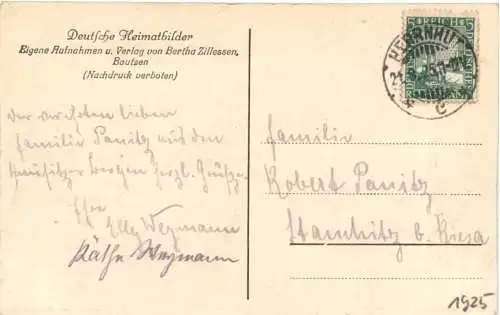 Deutsche Heimatbilder
Eigene Aufnahmen u. Verlag von Bertha Zillessen,
Bautzen
(Nachdruck verboten)
HERRNHUT
DEUTSCHES REICH
der lieben
Familie Panitz aus den
Lausitzer Bergen herzl. Grüße
Elly Wegmann
Käthe Wegmann
Familie
Robert Panitz
b. Riesa
1925